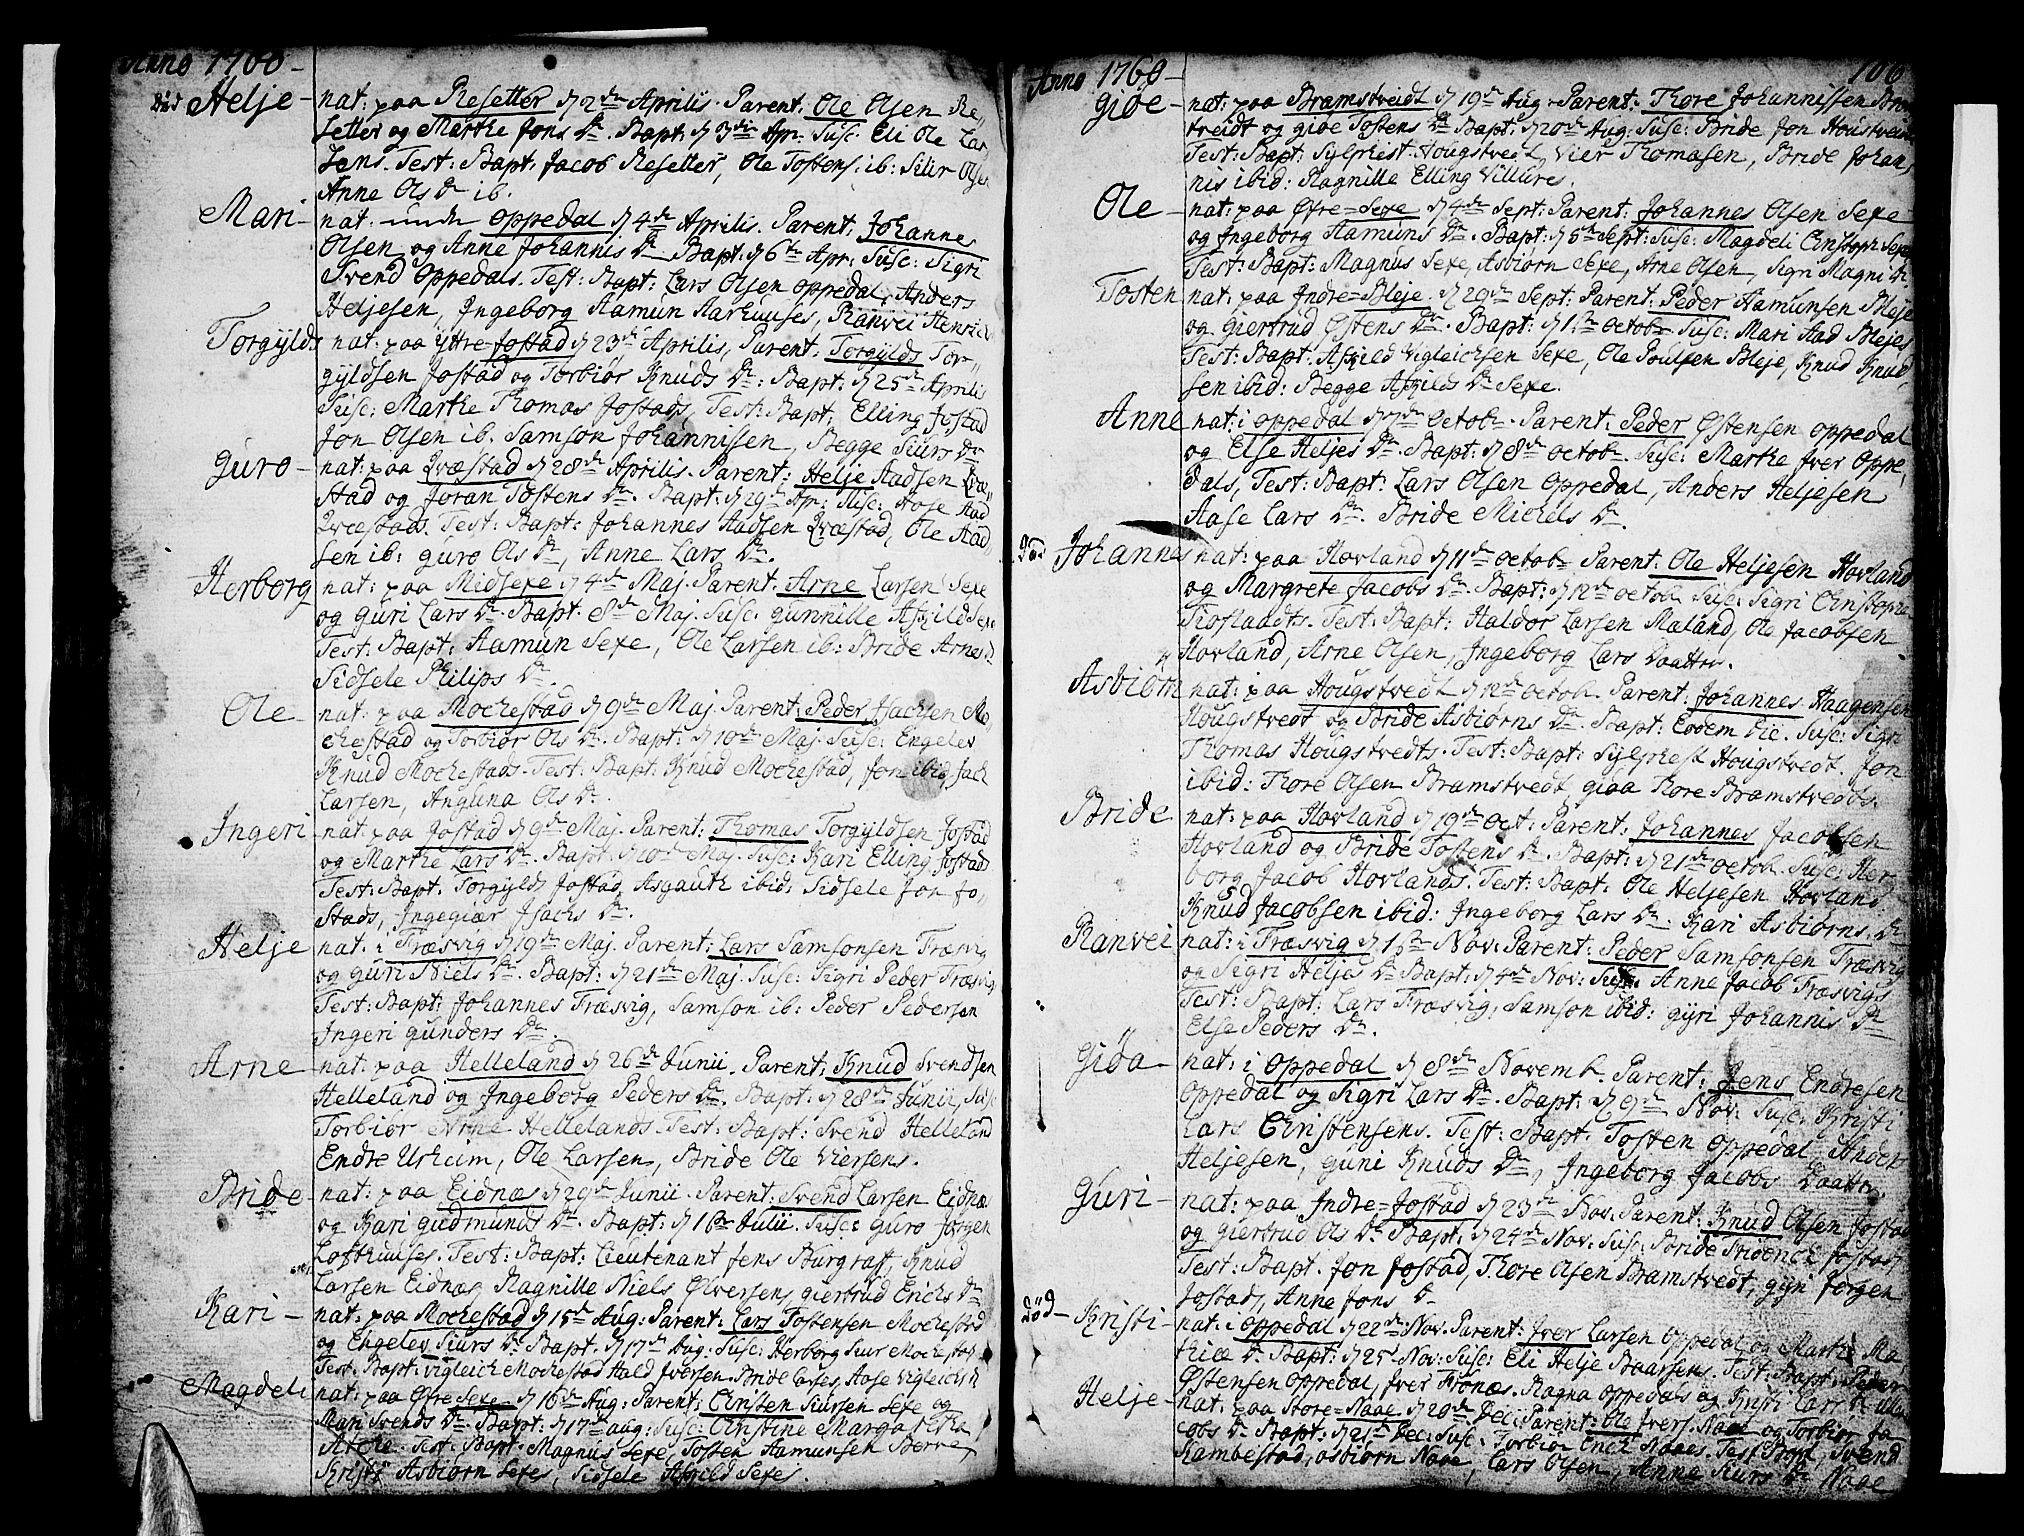 Anno 1760 -
död Helje - nat: paa Resetter d 2den Aprilis. Parent: Ole Olsen Re-
setter og Marthe Jons Dr. Bapt: d 3die Apr. Susc: Eli Ole Lar-
sens. Test: Bapt: Jacob Resetter, Ole Tostens: ib: Silir Olsen
Anne Ols Dr ib.
Mari - nat. unde oppedal d 4de Aprilis. Parent: Johannes
Olsen og Anne Johannis Dr Bapt: d 6te Apr: Susc: Sigri
Svend Oppedals. Test: Bapt: Lars Olsen oppedal, Anders
Heljesen, Ingeborg Aamun Aarhuuses, Ranvei Henric
Torgylds nat: paa Yttre Jostad d 23de Aprilis, Parent: Torgylds Tor-
gyldsen Jostad og Torbiør Knuds Dr: Bapt: d 25de Aprilis
Susc: Marthe Thomas Jostads, Test: Bapt: Elling Jostad
Jon Olsen ib. Samson Johannissen, Begge Siurs Dr
Guro - nat: paa Qvæstad d 28de Aprilis. Parent: Helje Aadsen Qvæ-
stad og Joran Tostens Dr. Bapt: d 29de Apr: Susc: Aase Aad
Qvæstads. Test: Bapt: Johannes Aadsen Qvæstad, Ole Aad-
sen ib: Guro Ols Dr, Anne Lars Dr.
Herborg nat: paa Midsexe d 4de Maj. Parent: Arne Larsen Sexe
og Guri Lars Dr. Bapt. 8de Maj. Susc: Gunnille Askild Sexe
Test: Bapt: Aamun Sexe, Ole Larsen ib: Bride Arnes Dr
Sidsele Philips Dr.
Ole - nat: paa Mochestad d 9de Maj. Parent: Peder Isachsen Mo-
chestad og Torbiør Ols Dr. Bapt: d 10de Maj. Susc: Engelev
Knud Mochestads. Test: Bapt: Knud Mochestad, Jon ibid, Jach
Larsen, Anguna Ols Dr.
Ingeri - nat: paa Jostad d 9de Maj. Parent: Thomas Torgyldsen Jostad
og Marthe Lars Dr. Bapt: d 10de Maj. Susc: Kari Elling Jostad
Test: Bapt. Torgyld Jostad, Asgauth ibid: Sidsele Jon Jo-
stads, Ingegiær Isachs Dr.
Helje nat. i Træsvig d 19de Maj. Parent: Lars Samsonsen Træsvig
og Guri Niels Dr. Bapt: d 21de Maj. Susc: Sigri Peder Træsvig
Test: Bapt: Johannes Træsvig, Samson ib: Peder Pedersen
Ingeri Gunders Dr.
Arne nat: paa Helleland d 26de Junii. Parent: Knud Svendsen
Helleland og Ingeborg Peders Dr. Bapt: d 28de Junii, Susc
Torbiør Arne Hellelands. Test: Bapt: Svend Helleland
Endre Urheim, Ole Larsen, Bride Ole Viersens.
Bride - nat: paa Eidnæs d 29de Junii. Parent: Svend Larsen Eidnæs
og Kari Gudmunds Dr. Bapt: d 1ste Julii. Susc: Guro Jørgen
Lofthuuses. Test: Bapt: Lieutenant Jens Burgraff, Knud
Larsen Eidnæs, Ragnille Niels Ølversens, Giertrud Erichs Dr
Kari - nat: paa Mochestad d 15de Aug: Parent: Lars Tostensen Mochestad
og Engelev Siurs Dr. Bapt. d 17de Aug: Susc: Herborg Siur Mochestad
Test: Bapt: Vigleich Mochestad Hald Iversen. Bride Larses, Aase Vigleich
Magdeli nat: paa Øfre Sexe d 16de Aug: Parent: Christen Siursen Sexe og
Mari Svends Dr. Bapt: d 17de aug: Susc: Christine Margaretha
Atche. Test: Bapt: Magnus Sexe, Tosten Aamundsen Berve,
Kristi Asbiørn Sexes, Sidsele Askild Sexes.
Anno 1760 - 106
Giöe - nat: paa Bramstveidt d 19de Aug. Parent: Thore Johannissen Bram-
stveidt og Giöe Tostens Dr Bapt: d 20de Aug: Susc: Bride Jon Houstveits
Test: Bapt: Sylphest Hougstvedt, Vier Thomasen, Bride Johan-
nis ibid: Ragnille Elling Villures.
Ole - nat: paa Øfre=Sexe d 4de Sept: Parent: Johannes Olsen Sexe
og Ingeborg Aamuns Dr. Bapt: d 5te Sept: Susc: Magdeli Christoph Sexe,
Test: Bapt: Magnus Sexe, Asbiørn Sexe, Arne Olsen, Sigri Magni Dr
Tosten nat: paa Indre=Bleje d 29de Sept: Parent: Peder Aamunsen Bleje
og Giertrud Østens Dr. Bapt: d 1ste Octob Susc: Mari Aad Blejes
Test: Bapt. Askild Vigleichsen Sexe, Ole Poulsen Bleje, Knud Knud
sen ibid: Begge Askilds Dr Sexe.
Anne nat: i oppedal d 7de Octob. Parent: Peder Østensen oppedal
og Else Heljes Dr. Bapt: d 8de Octob. Susc: Marthe Iver Oppe-
dals, Test: Bapt: Lars Olsen Oppedal, Anders Heljesen
Aase Lars Dr. Bride Michels Dr.
död Johannes nat: paa Hovland d 11de Octob Parent: Ole Heljesen Hovland
og Margrete Jacobs Dr. Bapt: d 12de Octob Susc: Sigri Christopher
Tiostadts. Test: Bapt: Haldor Larsen Maland, Ole Jacobsen
Hovland, Arne Olsen, Ingeborg Lars Daatter.
Asbiørn nat: paa Hougstvedt d 12de Octob. Parent: Johannes Haagensen
Hougstvedt og Bride Asbiørns Dr. Bapt: Eodem Die. Susc: Sigri
Thomas Hougstvedts. Test: Bapt: Sylphest Hougstvedt. Jon
ibid: Thore Olsen Bramstvedt, Giöa Thore Bramstvedts.
Bride nat: paa Hovland d 19de Oct: Parent: Johannes Jacobsen
Hovland og Bride Tostens Dr. Bapt: d 21de Octob. Susc: Her-
borg Jacob Hovlands. Test: Bapt: Ole Heljesen Hovland
Knud Jacobsen ibid: Ingeborg Lars Dr. Kari Asbiørns Dr
Ranvei nat: i Træsvig d 1ste Nov: Parent: Peder Samsonsen Træsvig
og Sigri Heljes Dr. Bapt: d 4de Nov: Susc: Anne Jacob Træsvigs
Test: Bapt: Lars Træsvig, Samson ibid: Gyri Johannis Dr
Else Peders Dr.
Giöa - nat: i Oppedal d 8de Novemb. Parent: Jens Endresen
Oppedal og Sigri Lars Dr. Bapt: d 9de Nov. Susc: Kristi
Lars Christensens. Test: Bapt: Tosten Oppedal, Anders
Heljesen, Guni Knuds Dr, Ingeborg Jacobs Daatter.
Guri - nat: paa Indre=Jostad d 23de Nov: Parent: Knud Olsen Jostad
og Giertrud Ols Dr. Bapt: d 24de Nov: Susc: Bride Jostad
Test: Bapt. Jon Jostad, Thore Olsen Bramstvedt, Gyri Jørgen
Jostads, Anne Jons Dr
död - Kristi - nat: i Oppedal d 22de Nov. Parent: Iver Larsen Oppedal og Marthe Ma-
thiæ Dr. Bapt: d 25de Nov: Susc: Eli Helje Baarsens. Test: Bapt: Peder
Østensen Oppedal, Iver Trones. Ragna Oppedals og Kristi Lars
Helje - nat: paa Store=Naae d 20de Dec: Parent: Ole Ivers. Naae og Torbiør Ja-
cobs Dr. Bapt: d 21de Dec: Susc: Torbiør Erich Naaes. Test: Bapt: Svend
Kambestad, Asbiørn Naae, Lars Olsen, Anna Siurs Dr Naae